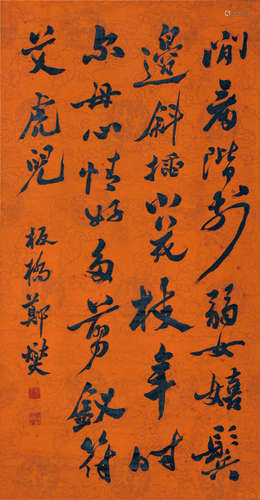 閒看階前弱女嬉鬢
邊斜插小花枝年時
尔母心情好多剪釵符
艾虎兒
板橋鄭燮